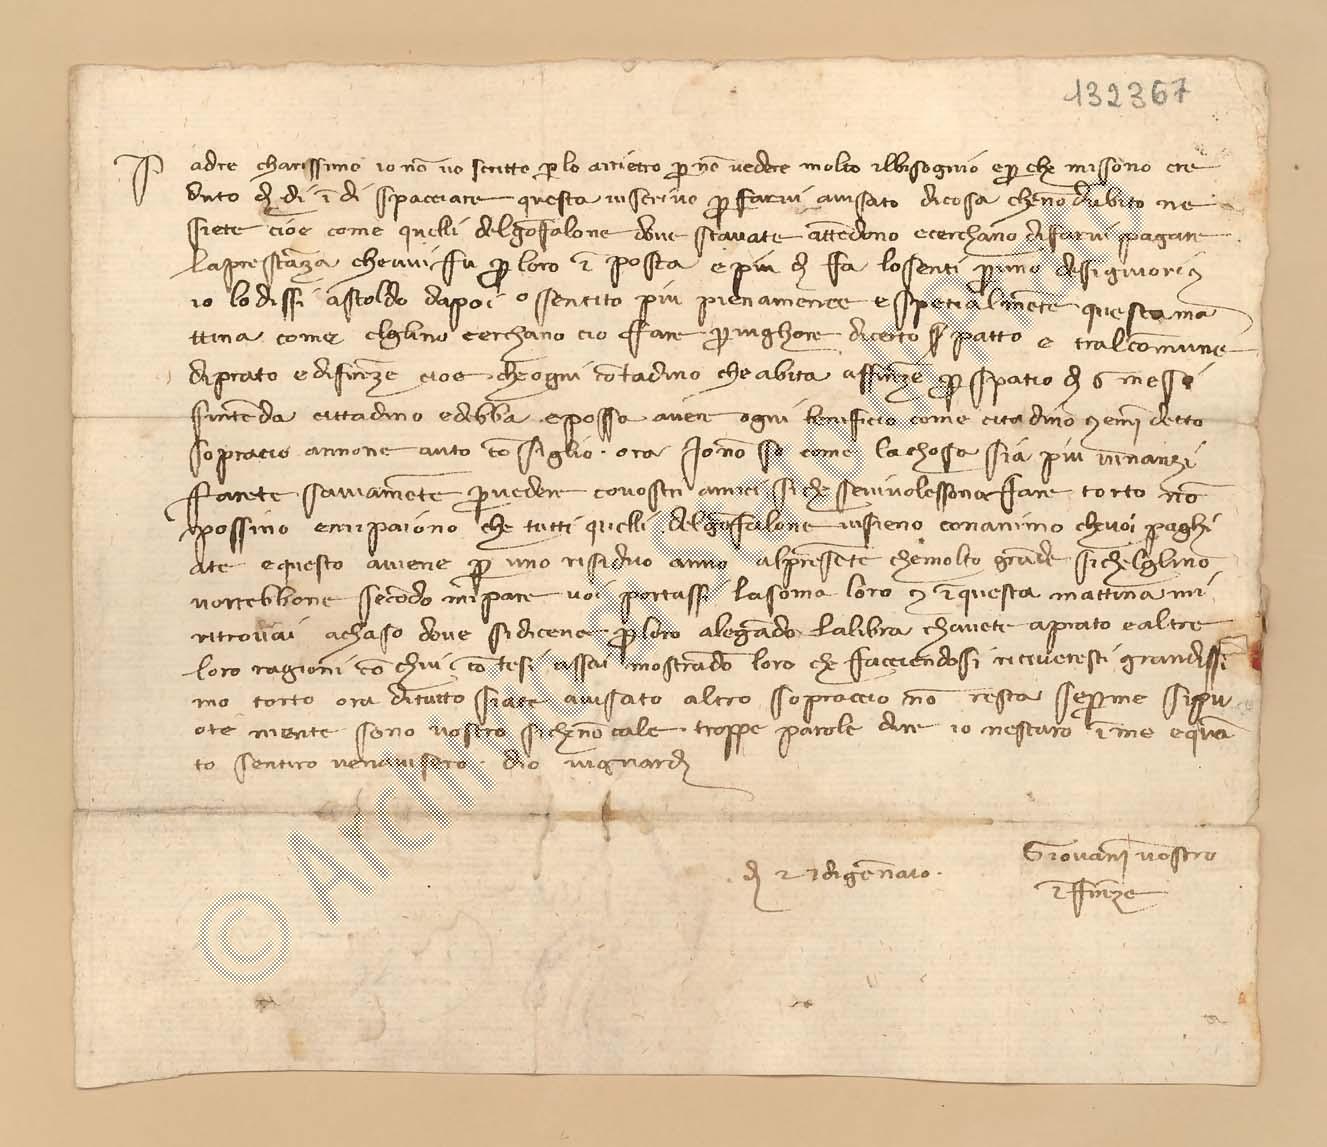 132367
Padre charissimo io nō vo scritto p lo adietro p nō vedere molto il bisognio e p che mi sono cre
duto dì di ī dì spacciare questa vi scrivo p farvi avisato di cosa che nō dubito ne
siete cioè come quelli del gōfalone dove stavate attēdono e cerchano di farvi pagare
la prestāza che vvi fu p loro ī posta e più dì fa lo senti p uno de signiori
io lo dissi a stoldo dapoi o sentito più pienamente e spetialmēte questa ma
ttina come eglino cerchano ciò ffare p vighore di certo patto e tral comune
di prato e di firēze cioè che ogni cōtadino che abita a ffirēze p spatio di 6 mesi
s intēda cittadino e debba e possa avere ogni benificio come citadino e m detto
sopracio anno ne auto cōsiglio . ora Io nō so come la chosa sia più innanzi
Farete saviamēte p vedere co vostri amici si che se vi volessono fare torto nō
possino e mi paiono che tutti quelli del gōfalone vi sieno con animo che voi paghi
ate e questo aviene p uno risiduo anno al presēte che molto grāde si ch eglino
vorrebbone secōdo mi pare voi portassi la soma loro e ī questa mattina mi
ritrovai a chaso dove si dicene p loro alegādo la libra ch avete a prato e altre
loro ragioni cō chui cōtesi assai mostrādo loro che faccendosi ricieveresti grandissi
mo torto ora di tutto siate avisato altro sopraccio nō resta se p me si pu
ote niente sono vostro si che nō cale troppe parole dire io ne starò ī me e quā
to sentiro ve n aviserò . dio vi guardi
Giovāni vostro
ī ffirēze
dì 21 di gēnaio .
© Archivio di Stato di Prato